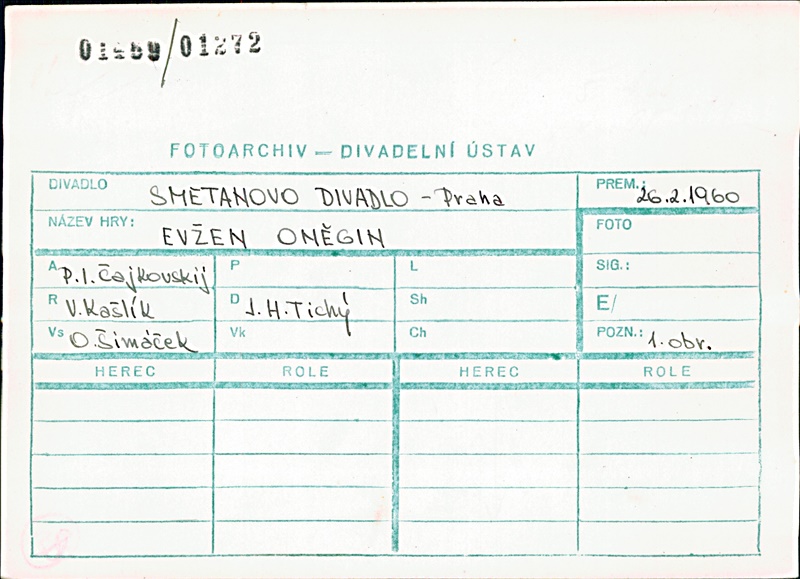 /01272
FOTOARCHIV — DIVADELNÍ ÚSTAV
DIVADLO SMETANOVO DIVADLO - Praha PREM.: 26.2.1960
NÁZEV HRY: EVŽEN ONĚGIN FOTO
A P.I. Čajkovskij P L SIG.:
R V. Kašlík D J. H. Tichý Sh E/
Vs O. Šimáček Vk Ch POZN.: 1. obr.
HEREC ROLE HEREC ROLE